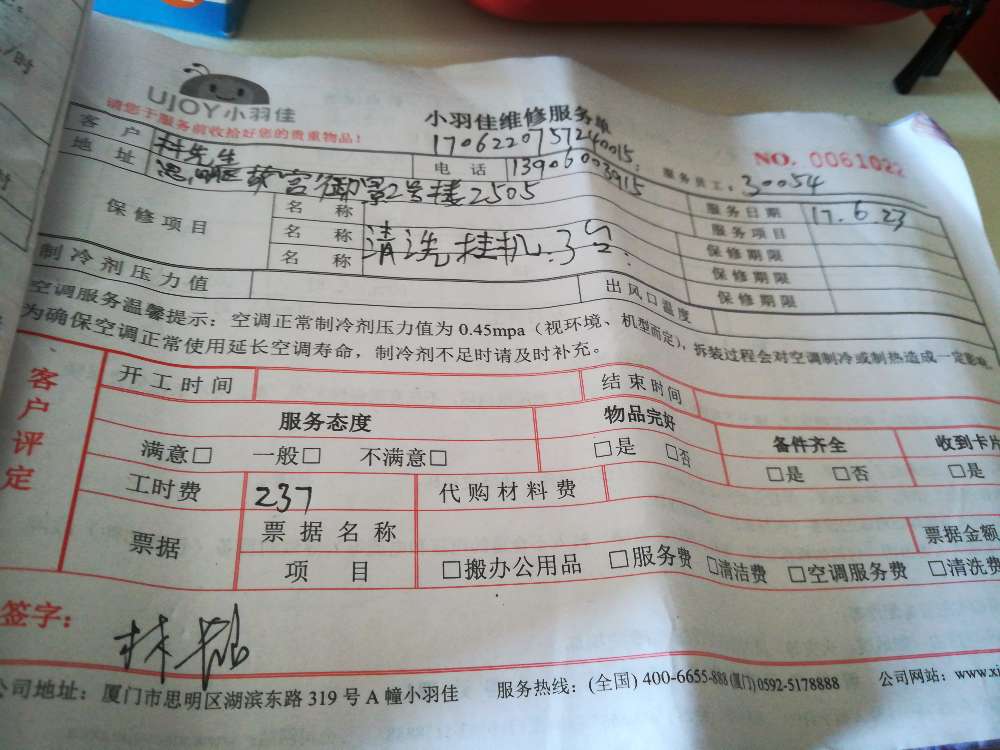 UJOY小羽佳
请您于服务前收拾好您的贵重物品！
小羽佳维修服务单
1706220757240015
NO. 0061022
客户 林先生 电话 13906003915 服务员工：30054
地址 2号楼2505 服务日期 17.6.23
保修项目 名称 服务项目
名称 清洗挂机.3台 保修期限
名称 保修期限
保修期限
制冷剂压力值 出风口温度
空调服务温馨提示：空调正常制冷剂压力值为 0.45mpa（视环境、机型而定），拆装过程会对空调制冷或制热造成一定影响
为确保空调正常使用延长空调寿命，制冷剂不足时请及时补充。
客户评定
开工时间 结束时间
服务态度 物品完好 备件齐全 收到卡片
满意□ 一般□ 不满意□ □是 □否 □是 □否 □是
工时费 237 代购材料费
票据 票据名称 票据金额
项目 □搬办公用品 □服务费 □清洁费 □空调服务费 □清洗费
签字：林
公司地址：厦门市思明区湖滨东路 319 号 A 幢小羽佳 服务热线：(全国) 400-6655-888 (厦门) 0592-5178888 公司网站：www.xi